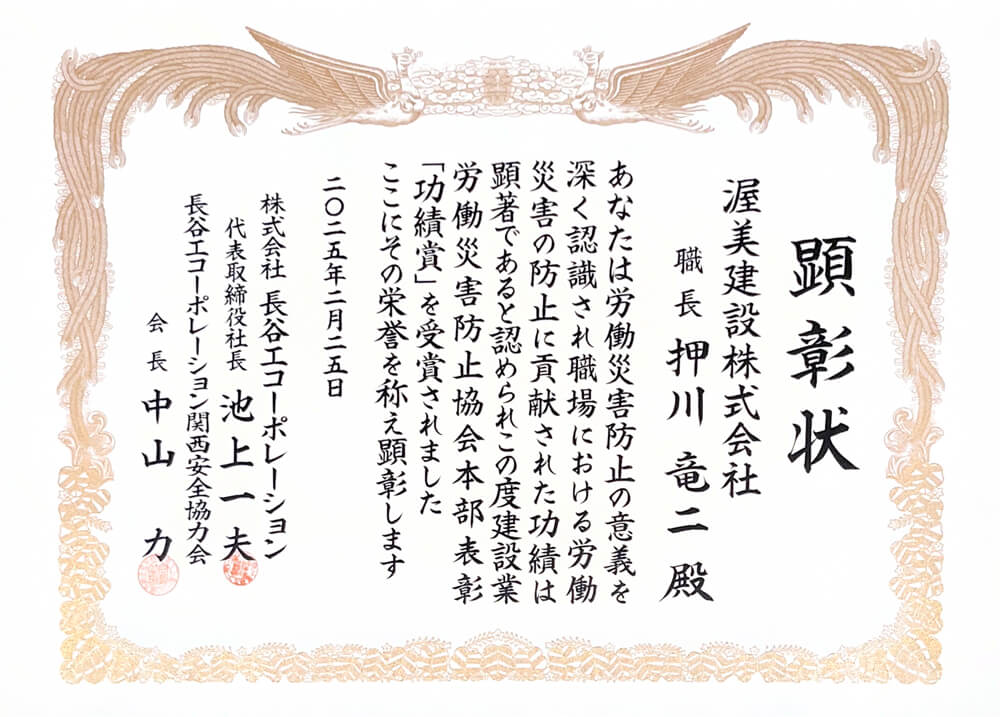 顕彰状
渥美建設株式会社
職長 押川竜二殿
あなたは労働災害防止の意義を
深く認識され職場における労働
災害の防止に貢献された功績は
顕著であると認められこの度建設業
労働災害防止協会本部表彰
「功績賞」を受賞されました
ここにその栄誉を称え顕彰します
二〇二五年二月二五日
株式会社 長谷工コーポレーション
代表取締役社長 池上一夫
長谷工コーポレーション関西安全協力会
会長 中山 力